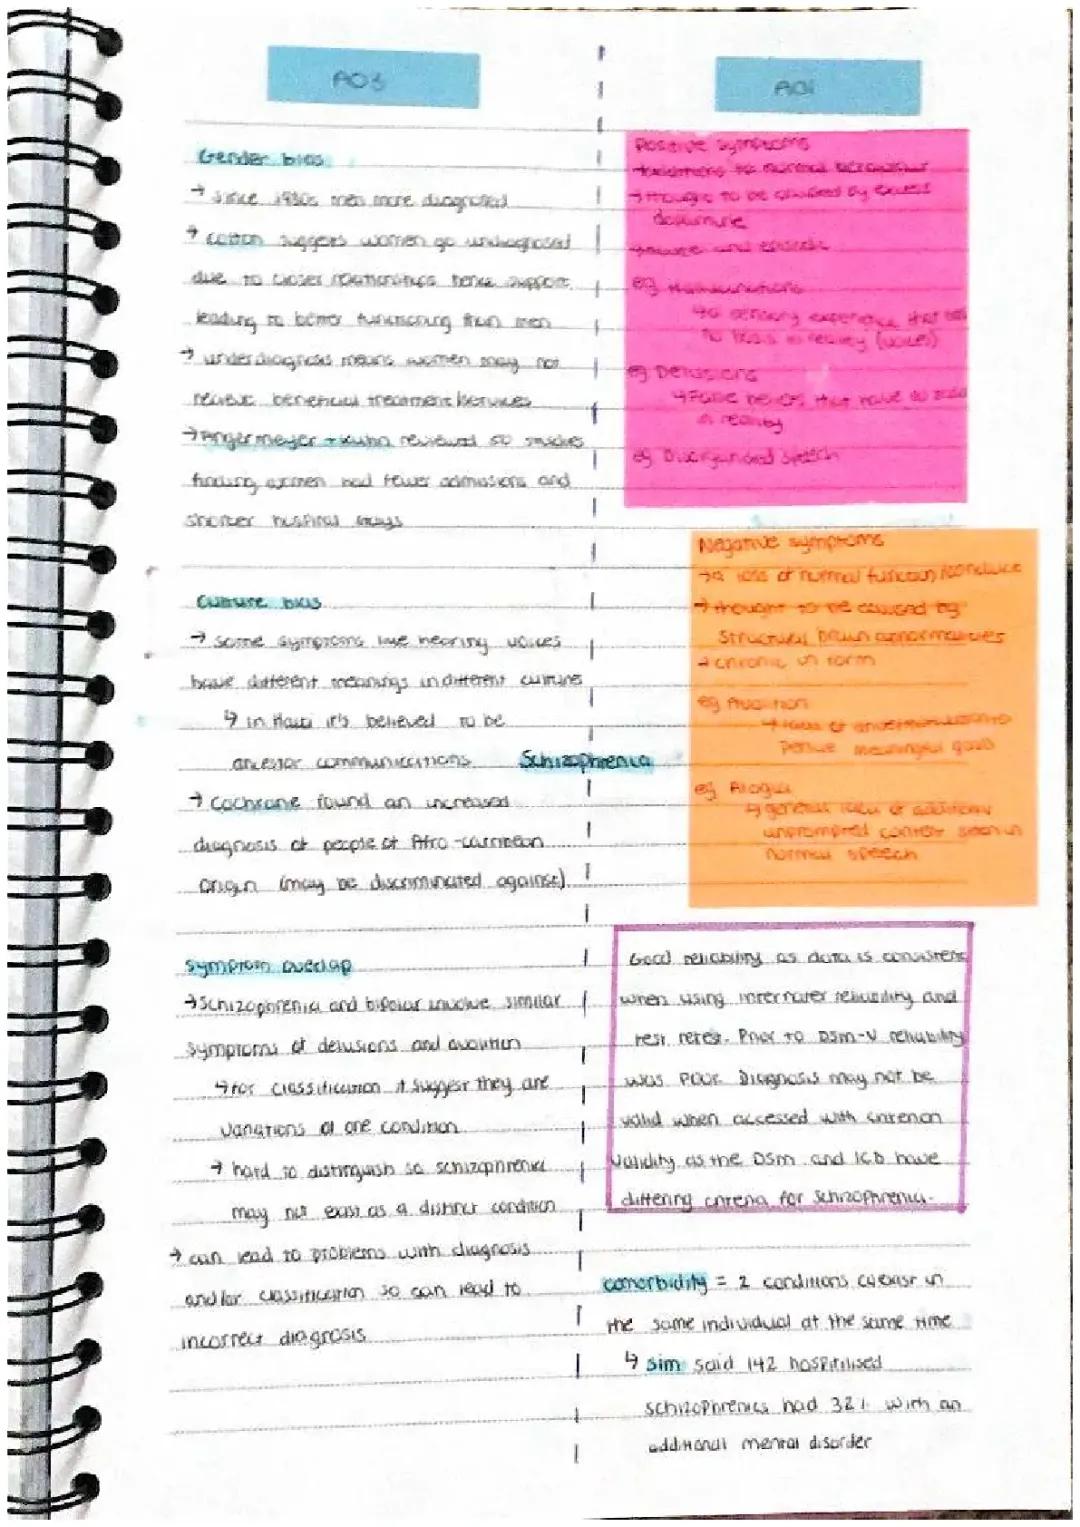 AO3
Gender bias
→ Since 1980s men more diagnosed
→ Cotton suggests women go undiagnosed
due to closer relationships hence support
leading to better functioning than men
→ underdiagnosis means women may not
receive beneficial treatment/services
→ Angermeyer + Kuhn reviewed 50 studies
finding women had fewer admissions and
shorter hospital stays
Culture bias
→ some symptoms like hearing voices
have different meanings in different cultures
↳ in Haiti it's believed to be
ancestor communications
→ Cochrane found an increased
diagnosis of people of Afro-carribean
origin (may be discriminated against)
Symptom overlap
→ Schizophrenia and bipolar involve similar
symptoms of delusions and avolition
↳ for classification it suggest they are
variations of one condition
→ hard to distinguish so schizophrenia
may not exist as a distinct condition
→ can lead to problems with diagnosis
and/or classification so can lead to
incorrect diagnosis
Schizophrenia
AO1
Positive symptoms
→ additions to normal behaviour
→ thought to be caused by excess
dopamine
and episodic
eg Hallucinations
↳ a sensory experience that has
no basis in reality (voices)
eg Delusions
↳ False beliefs that have no
in reality
eg Disorganised speech
Negative symptoms
→ a loss of normal function/
→ thought to be caused by
structural brain abnormalities
→ chronic in form
eg Avolition
↳ lack of
persue meaningful goals
eg Alogia
↳ general lack of additional
unprompted content seen in
normal speech
Good reliability as data is consistent
when using interrater reliability and
test retest. Prior to DSM-V reliability
was poor. Diagnosis may not be
valid when accessed with criterion
validity as the DSM and ICD have
differing criteria for schizophrenia.
comorbidity = 2 conditions coexist in
the same individual at the same time
↳ Sim said 142 hospitilised
schizophrenics had 32% with an
additional mental disorder